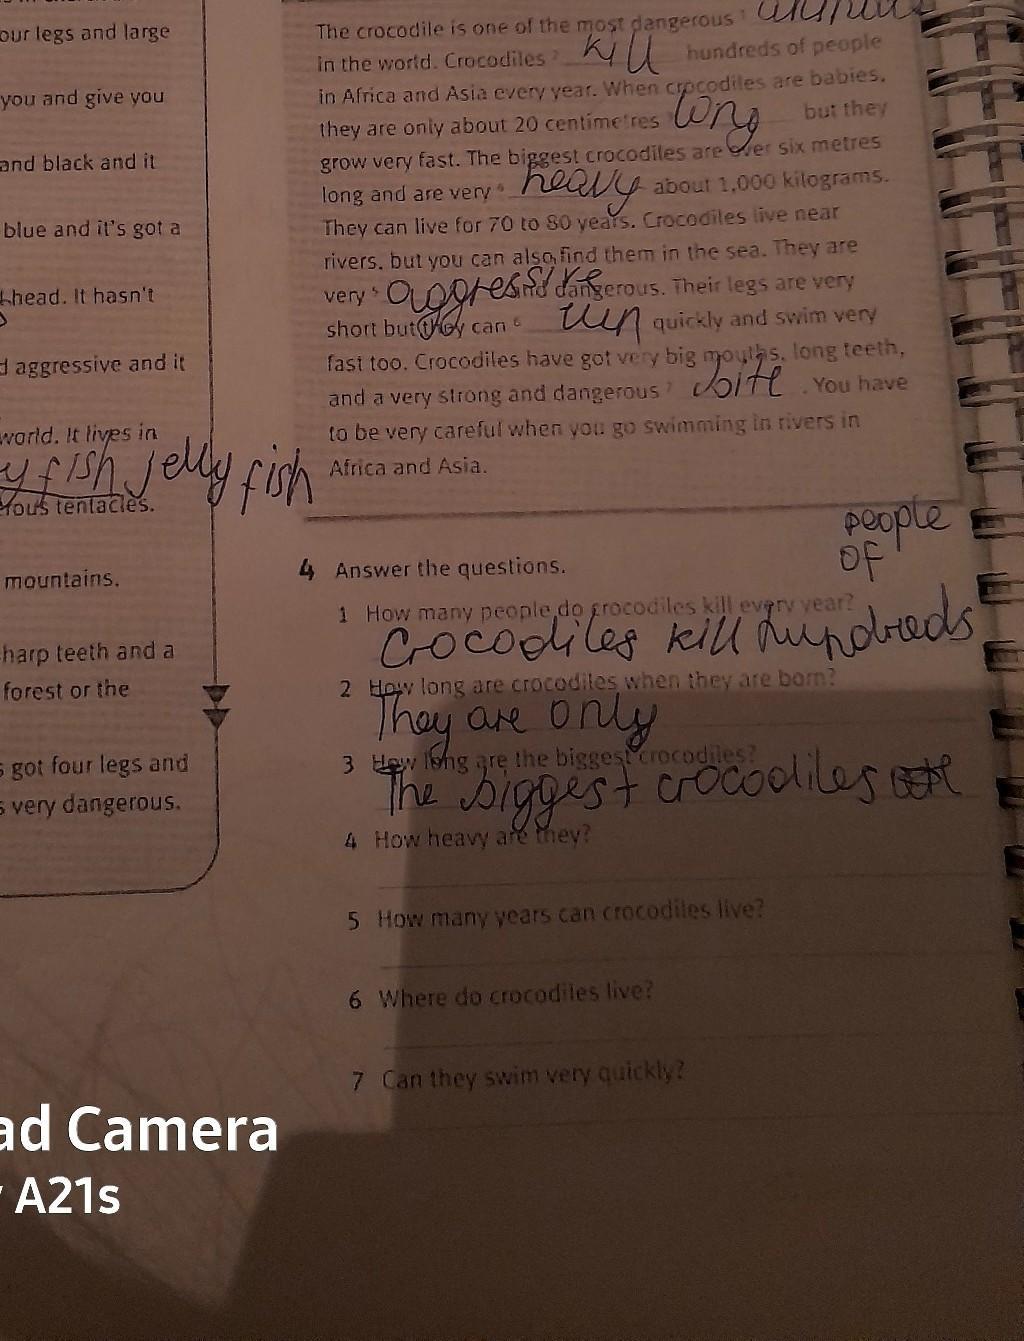 our legs and large
you and give you
and black and it
blue and it's got a
head. It hasn't
d aggressive and it
world. It lives in
y fish jelly fish
rous tentacles.
mountains.
harp teeth and a
forest or the
s got four legs and
s very dangerous.
The crocodile is one of the most dangerous 1 animals
in the world. Crocodiles 2 kill hundreds of people
in Africa and Asia every year. When crocodiles are babies,
they are only about 20 centimetres long but they
grow very fast. The biggest crocodiles are over six metres
long and are very 4 heavy about 1,000 kilograms.
They can live for 70 to 80 years. Crocodiles live near
rivers, but you can also find them in the sea. They are
very 5 aggressive and dangerous. Their legs are very
short but they can 6 run quickly and swim very
fast too. Crocodiles have got very big mouths, long teeth,
and a very strong and dangerous 7 bite . You have
to be very careful when you go swimming in rivers in
Africa and Asia.
people
OF
4 Answer the questions.
1 How many people do crocodiles kill every year?
Crocodiles kill hundreds
2 How long are crocodiles when they are born?
They are only
3 How long are the biggest crocodiles?
The biggest crocodiles
4 How heavy are they?
5 How many years can crocodiles live?
6 Where do crocodiles live?
7 Can they swim very quickly?
ad Camera
A21s